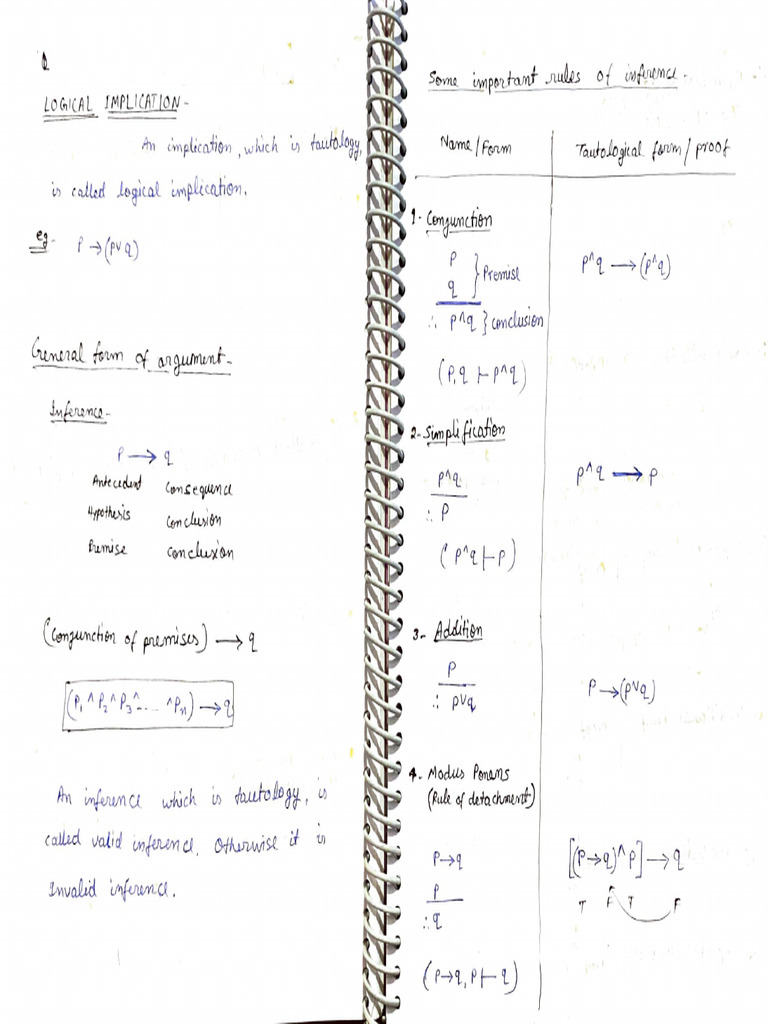 LOGICAL IMPLICATION-
An implication, which is tautology,
is called logical implication.
eg- P → (P∨q)
General form of argument-
Inference-
P → q
Antecedent Consequence
Hypothesis Conclusion
Premise Conclusion
(Conjunction of premises) → q
(P₁ ^ P₂ ^ P₃ ^ .... ^ Pn) → q
An inference which is tautology, is
called valid inference. Otherwise it is
Invalid inference.
Some important rules of inference-
Name/Form Tautological form/proof
1- Conjunction
P
q } Premise P^q → (P^q)
∴ P^q } Conclusion
(P, q ⊢ P^q)
2- Simplification
P^q P^q → P
∴ P
(P^q ⊢ P)
3- Addition
P
∴ P∨q P → (P∨q)
4- Modus Ponens
(Rule of detachment)
P→q [(P→q)^P] → q
P T F T F
∴ q
(P→q, P ⊢ q)